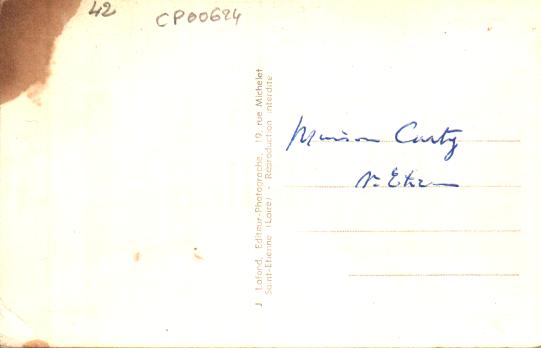 42
CP00624
J Lafond, Editeur-Photographe, 19, rue Michelet
Saint-Etienne (Loire) - Reproduction interdite
Maison Carty
St Etienne